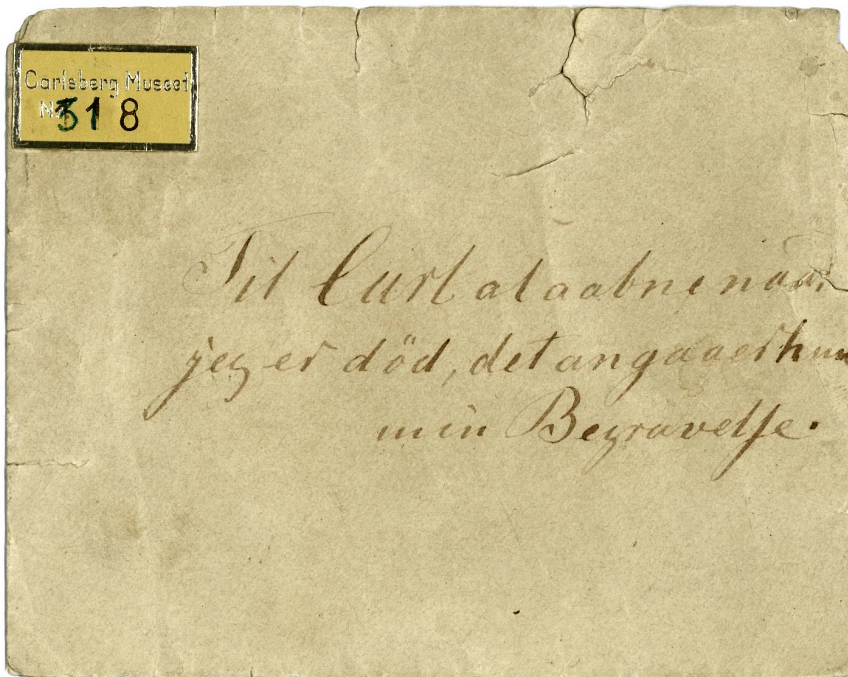 Carlsberg Museet
No 318
Til Carl at aabne naar
jeg er död, det angaaer kun
min Begravelse.